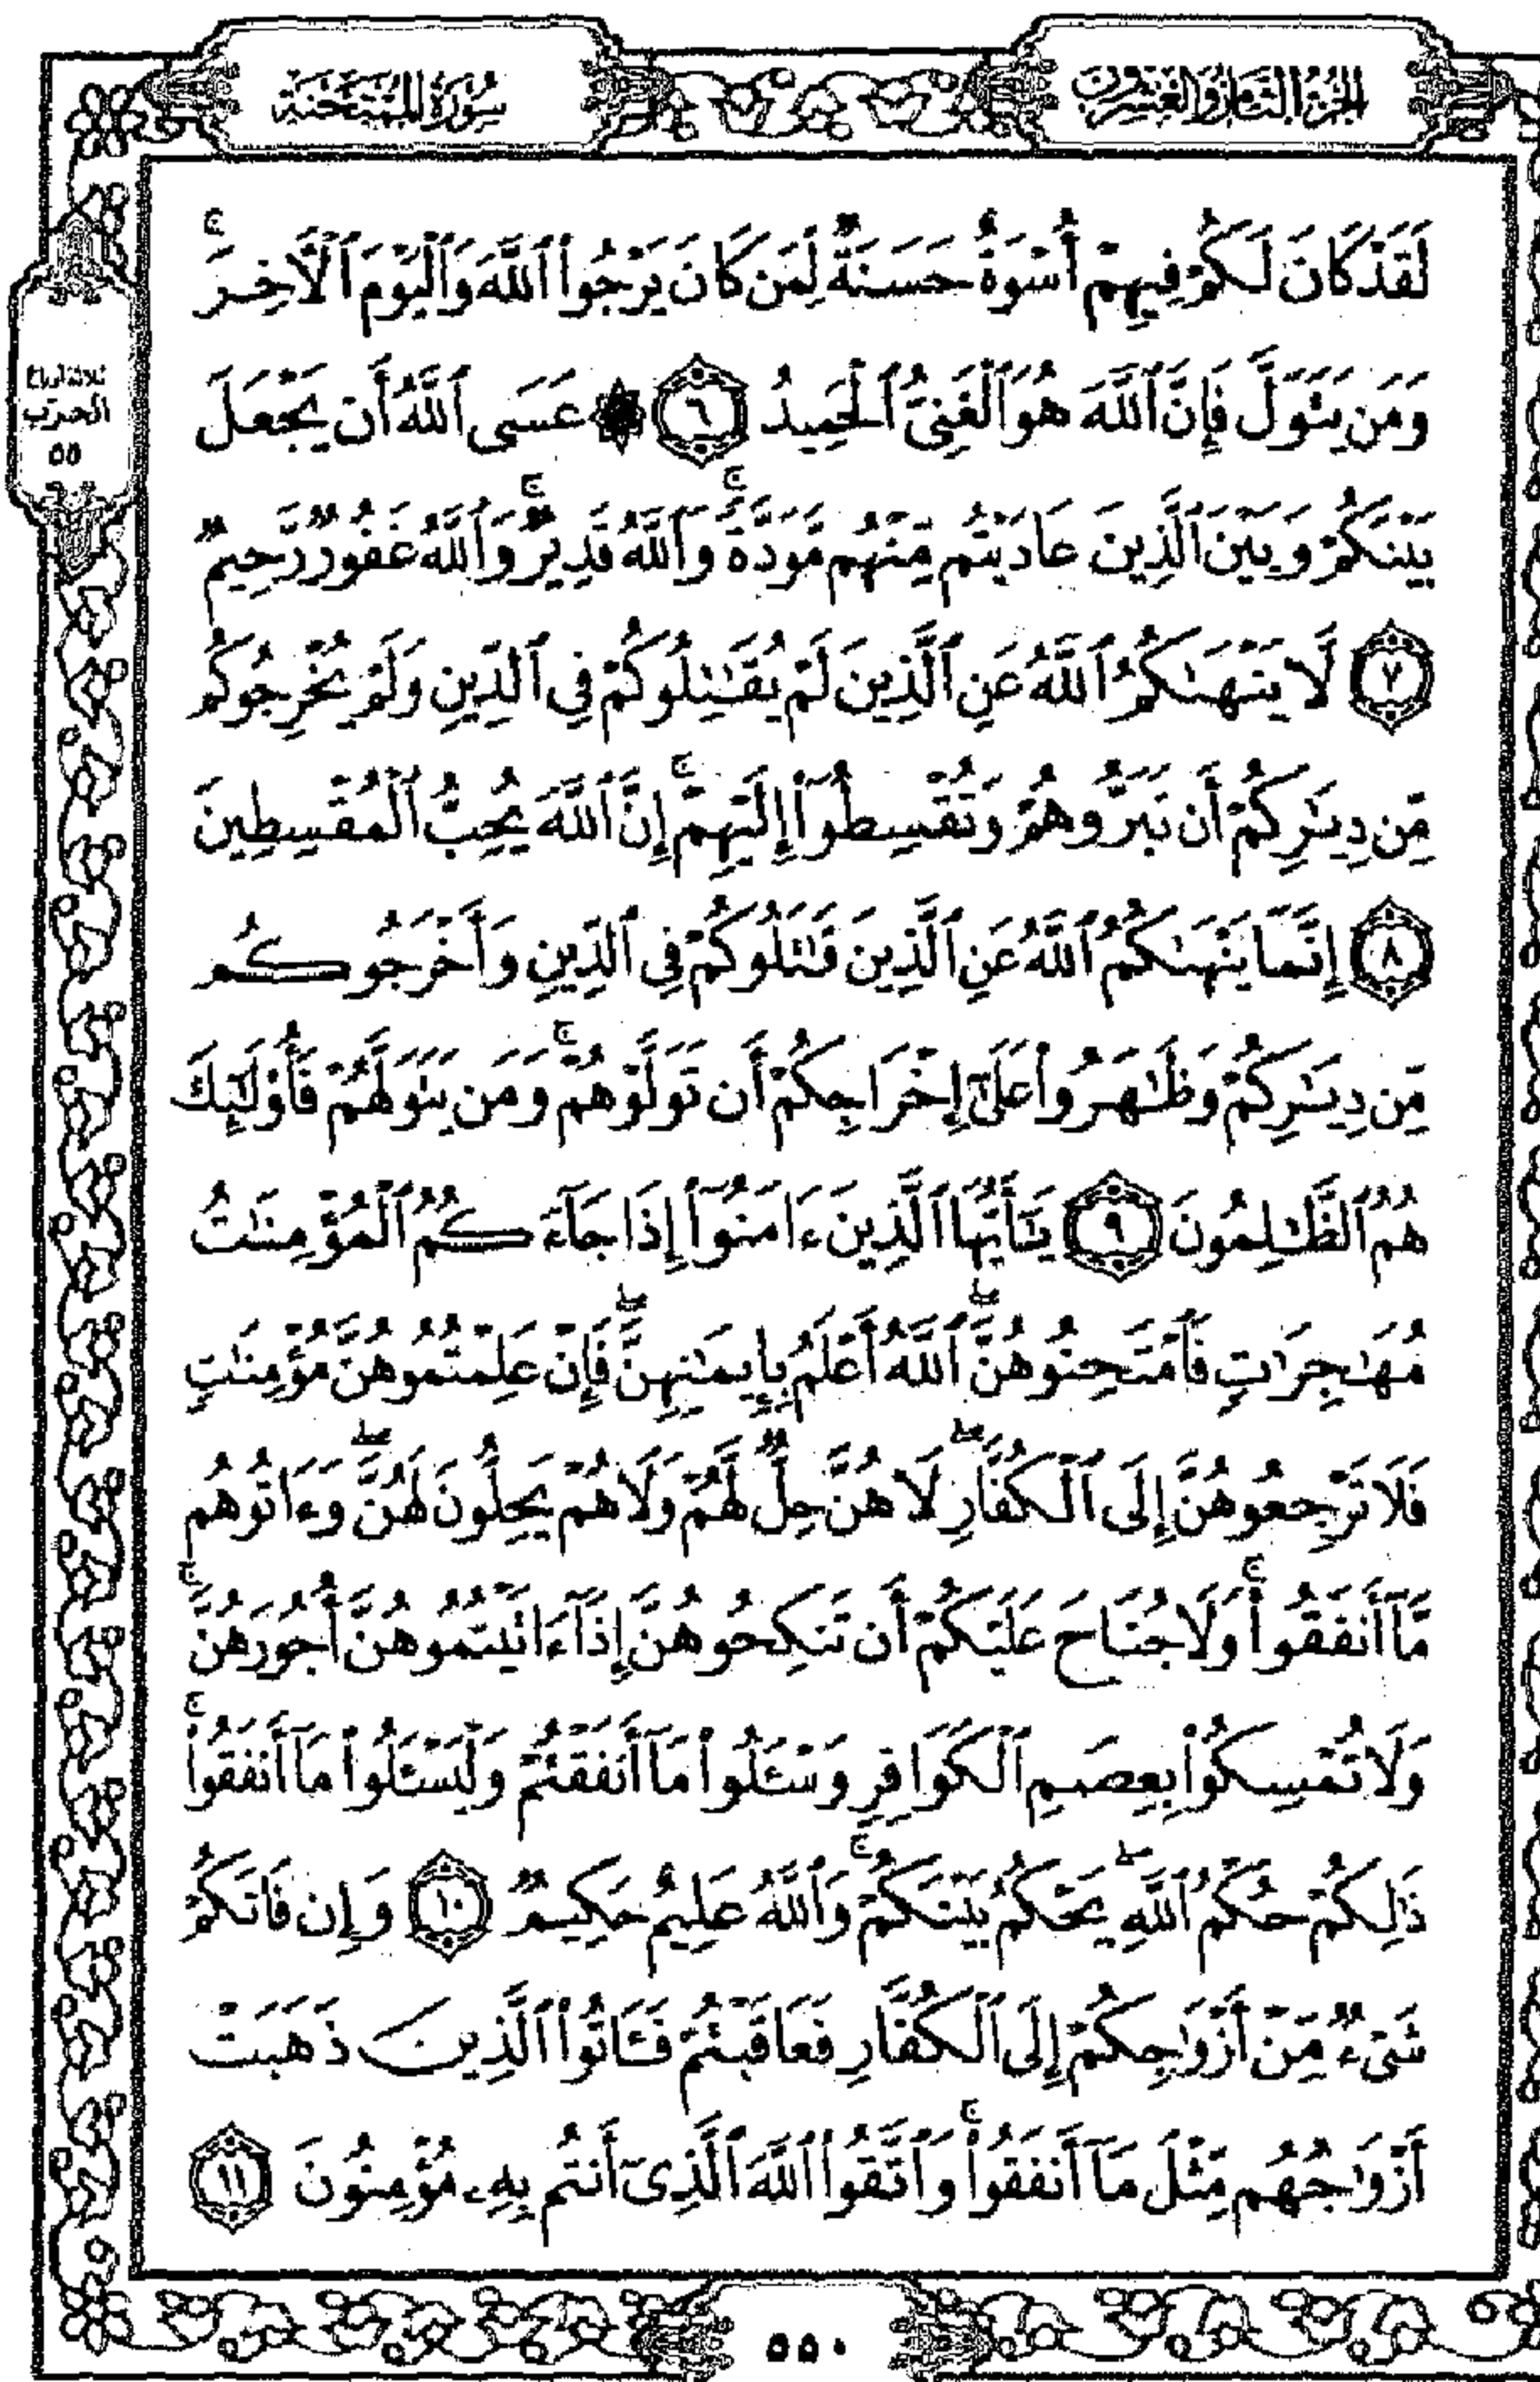 الجزء الثامن والعشرون
سورة الممتحنة
لَقَدْ كَانَ لَكُمْ فِيهِمْ أُسْوَةٌ حَسَنَةٌ لِّمَن كَانَ يَرْجُوا۟ ٱللَّهَ وَٱلْيَوْمَ ٱلْـَٔاخِرَ ۚ
وَمَن يَتَوَلَّ فَإِنَّ ٱللَّهَ هُوَ ٱلْغَنِىُّ ٱلْحَمِيدُ ٦ ۞ عَسَى ٱللَّهُ أَن يَجْعَلَ
بَيْنَكُمْ وَبَيْنَ ٱلَّذِينَ عَادَيْتُم مِّنْهُم مَّوَدَّةً ۚ وَٱللَّهُ قَدِيرٌ ۚ وَٱللَّهُ غَفُورٌ رَّحِيمٌ
٧ لَّا يَنْهَىٰكُمُ ٱللَّهُ عَنِ ٱلَّذِينَ لَمْ يُقَـٰتِلُوكُمْ فِى ٱلدِّينِ وَلَمْ يُخْرِجُوكُم
مِّن دِيَـٰرِكُمْ أَن تَبَرُّوهُمْ وَتُقْسِطُوٓا۟ إِلَيْهِمْ ۚ إِنَّ ٱللَّهَ يُحِبُّ ٱلْمُقْسِطِينَ
٨ إِنَّمَا يَنْهَىٰكُمُ ٱللَّهُ عَنِ ٱلَّذِينَ قَـٰتَلُوكُمْ فِى ٱلدِّينِ وَأَخْرَجُوكُم
مِّن دِيَـٰرِكُمْ وَظَـٰهَرُوا۟ عَلَىٰٓ إِخْرَاجِكُمْ أَن تَوَلَّوْهُمْ ۚ وَمَن يَتَوَلَّهُمْ فَأُو۟لَـٰٓئِكَ
هُمُ ٱلظَّـٰلِمُونَ ٩ يَـٰٓأَيُّهَا ٱلَّذِينَ ءَامَنُوٓا۟ إِذَا جَآءَكُمُ ٱلْمُؤْمِنَـٰتُ
مُهَـٰجِرَٰتٍ فَٱمْتَحِنُوهُنَّ ۖ ٱللَّهُ أَعْلَمُ بِإِيمَـٰنِهِنَّ ۖ فَإِنْ عَلِمْتُمُوهُنَّ مُؤْمِنَـٰتٍ
فَلَا تَرْجِعُوهُنَّ إِلَى ٱلْكُفَّارِ ۖ لَا هُنَّ حِلٌّ لَّهُمْ وَلَا هُمْ يَحِلُّونَ لَهُنَّ ۖ وَءَاتُوهُم
مَّآ أَنفَقُوا۟ ۚ وَلَا جُنَاحَ عَلَيْكُمْ أَن تَنكِحُوهُنَّ إِذَآ ءَاتَيْتُمُوهُنَّ أُجُورَهُنَّ ۚ
وَلَا تُمْسِكُوا۟ بِعِصَمِ ٱلْكَوَافِرِ وَسْـَٔلُوا۟ مَآ أَنفَقْتُمْ وَلْيَسْـَٔلُوا۟ مَآ أَنفَقُوا۟ ۚ
ذَٰلِكُمْ حُكْمُ ٱللَّهِ ۖ يَحْكُمُ بَيْنَكُمْ ۚ وَٱللَّهُ عَلِيمٌ حَكِيمٌ ١٠ وَإِن فَاتَكُمْ
شَىْءٌ مِّنْ أَزْوَٰجِكُمْ إِلَى ٱلْكُفَّارِ فَعَاقَبْتُمْ فَـَٔاتُوا۟ ٱلَّذِينَ ذَهَبَتْ
أَزْوَٰجُهُم مِّثْلَ مَآ أَنفَقُوا۟ ۚ وَٱتَّقُوا۟ ٱللَّهَ ٱلَّذِىٓ أَنتُم بِهِۦ مُؤْمِنُونَ ١١
ثلاثة أرباع
الحزب
٥٥
٥٥٠